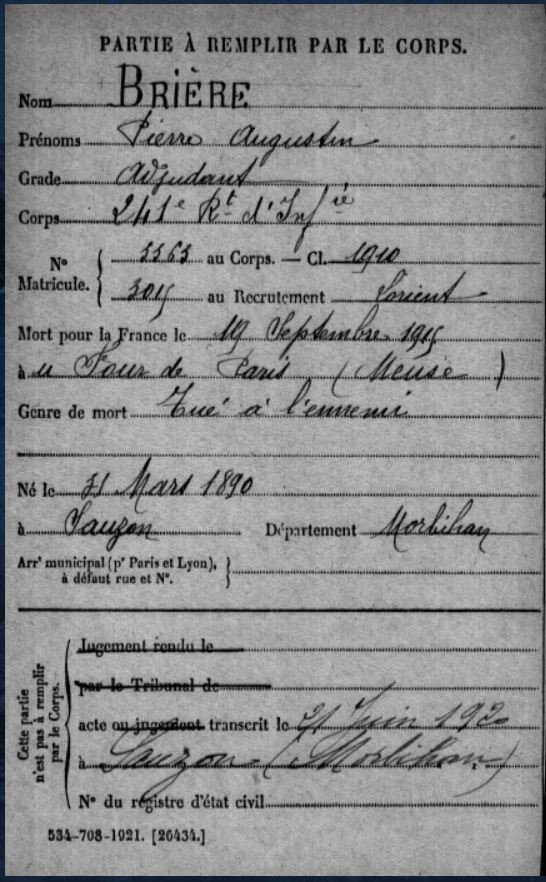 PARTIE À REMPLIR PAR LE CORPS.
Nom BRIÈRE
Prénoms Pierre Augustin
Grade Adjudant
Corps 241e Rt d'Infie
No Matricule. 3363 au Corps. — Cl. 1910
3015 au Recrutement Lorient
Mort pour la France le 19 Septembre 1915
à u Four de Paris (Meuse)
Genre de mort Tué à l'ennemi
Né le 31 Mars 1890
à Sauzon Département Morbihan
Arrt municipal (pr Paris et Lyon), à défaut rue et No.
Cette partie n'est pas à remplir par le Corps.
Jugement rendu le
par le Tribunal de
acte ou jugement transcrit le 21 Juin 1920
à Sauzon (Morbihan)
No du registre d'état civil
534-708-1921. [26434.]